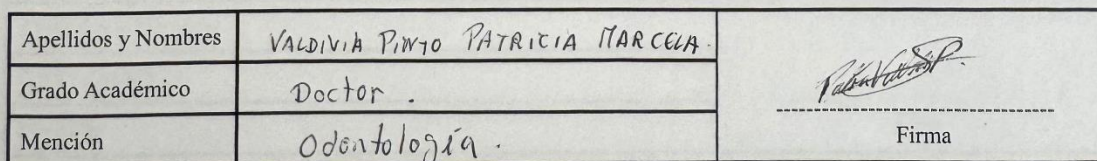 Apellidos y Nombres VALDIVIA PINTO PATRICIA MARCELA.
Grado Académico Doctor.
Mención Odontología.
Firma